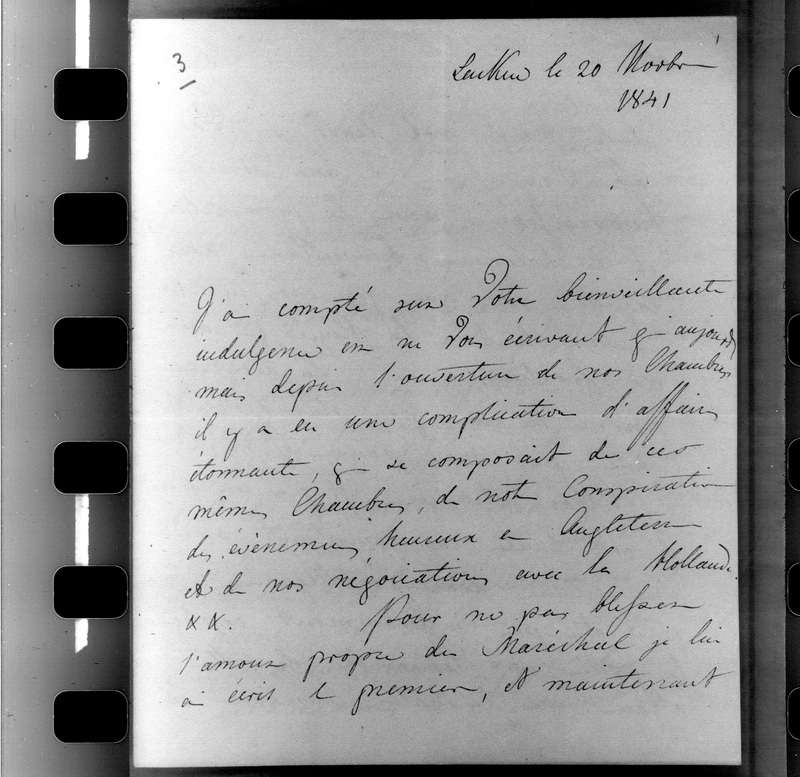 3
Laeken le 20 Novbr
1841
J'ai compté sur Votre bienveillante
indulgence en ne Vous écrivant qu'aujourd
mais depuis l'ouverture de nos Chambres
il y a eu une complication d'affaires
étonnante, qui se composait de ces
mêmes Chambres, de notre Conspiration
des évènemens heureux en Angleterre
et de nos négociations avec la Hollande.
x x. Pour ne pas blesser
l'amour propre du Maréchal je lui
ai écrit le premier, et maintenant